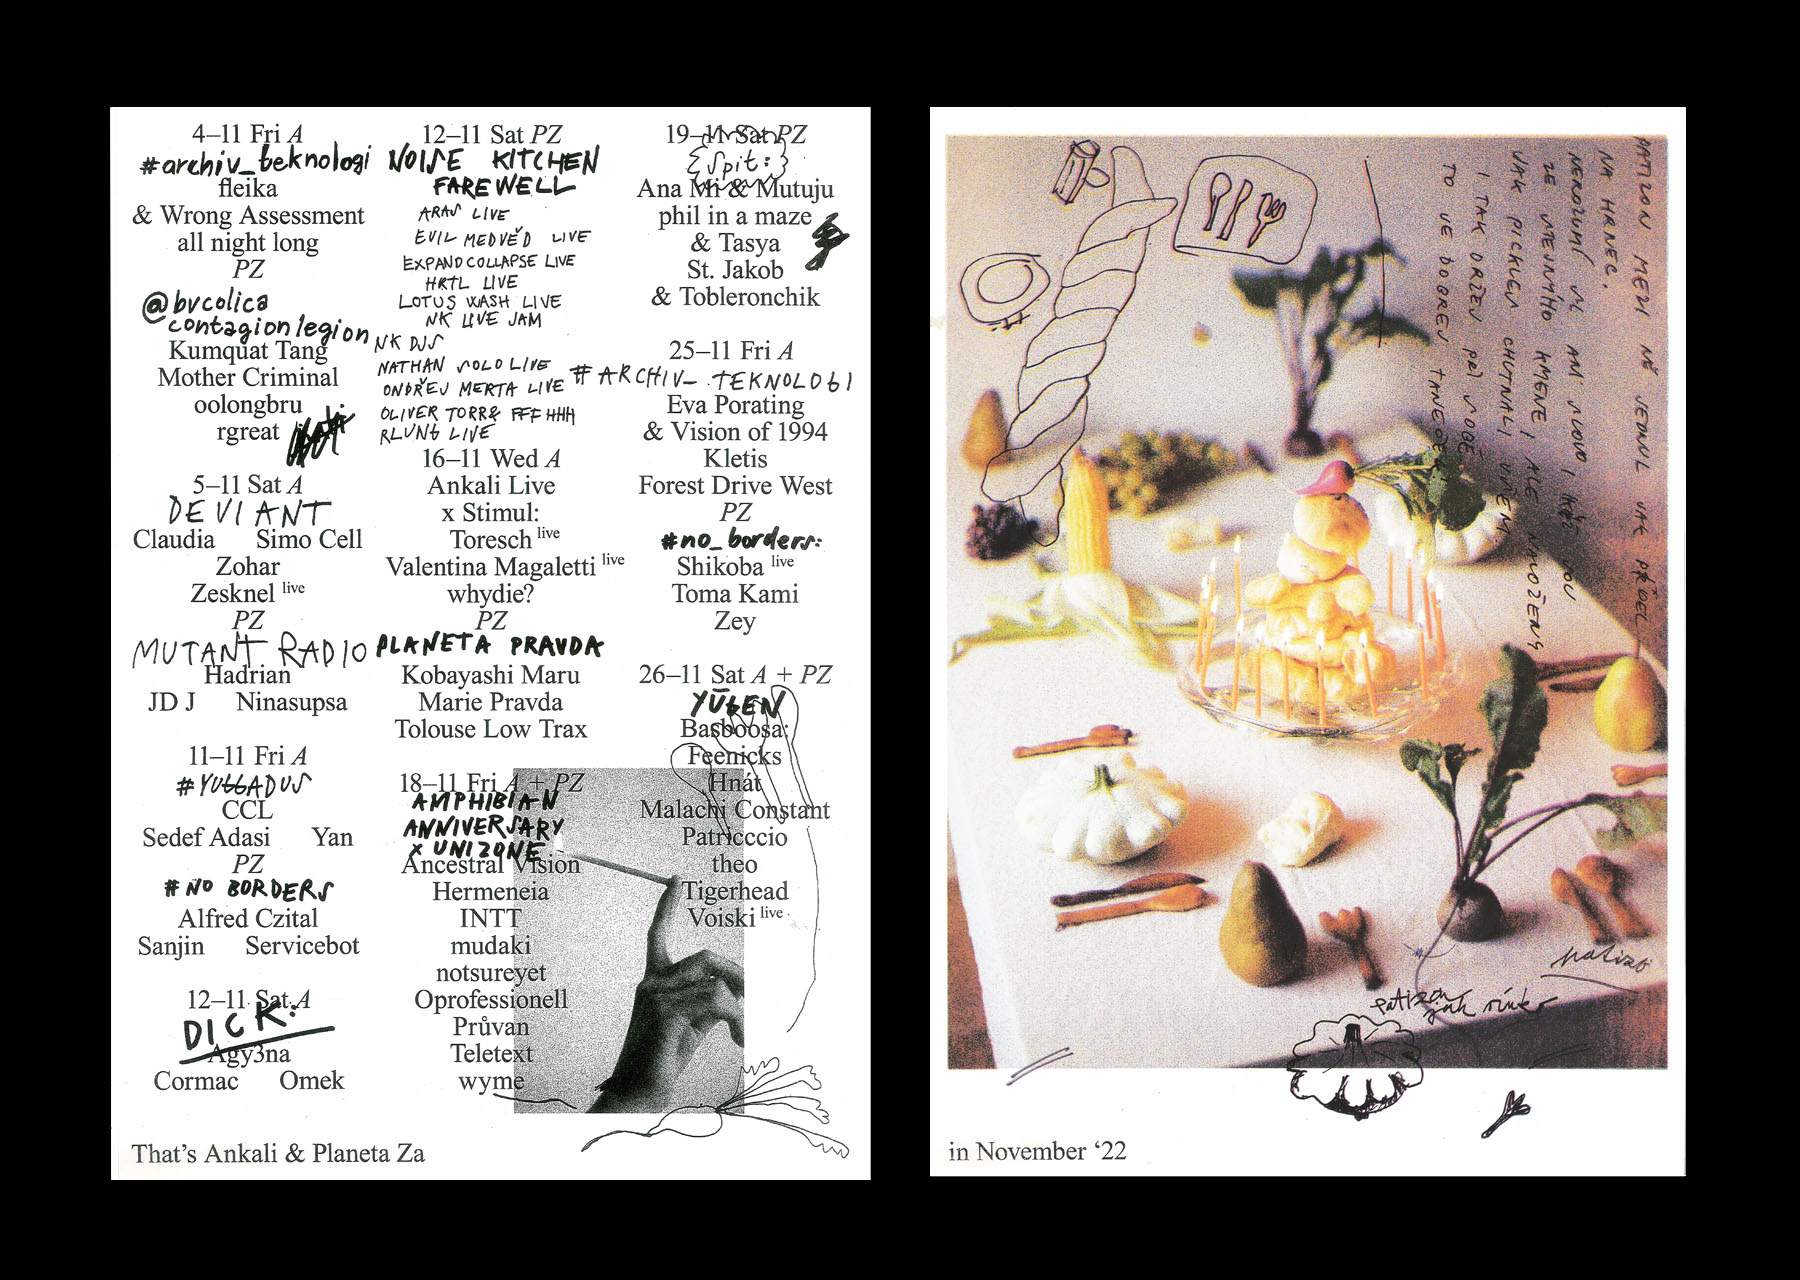 4–11 Fri A
#archiv_teknologi
fleika
& Wrong Assessment
all night long
PZ
@bvcolica
contagion legion
Kumquat Tang
Mother Criminal
oolongbru
rgreat
5–11 Sat A
DEVIANT
Claudia Simo Cell
Zohar
Zesknel live
PZ
MUTANT RADIO
Hadrian
JD J Ninasupsa
11–11 Fri A
#YUGGADUS
CCL
Sedef Adasi Yan
PZ
#NO BORDERS
Alfred Czital
Sanjin Servicebot
12–11 Sat A
DICK:
Agy3na
Cormac Omek
12–11 Sat PZ
NOISE KITCHEN
FAREWELL
ARAS LIVE
EVIL MEDVĚD LIVE
EXPANDCOLLAPSE LIVE
HRTL LIVE
LOTUS WASH LIVE
NK LIVE JAM
NK DJS
NATHAN SOLO LIVE
ONDŘEJ MERTA LIVE
OLIVER TORR& FFF HHH
RLUNG LIVE
16–11 Wed A
Ankali Live
x Stimul:
Toresch live
Valentina Magaletti live
whydie?
PZ
PLANETA PRAVDA
Kobayashi Maru
Marie Pravda
Tolouse Low Trax
18–11 Fri A + PZ
AMPHIBIAN
ANNIVERSARY
x UNIZONE
Ancestral Vision
Hermeneia
INTT
mudaki
notsureyet
Oprofessionell
Průvan
Teletext
wyme
19–11 Sat PZ
{Spit:}
Ana Mi & Mutuju
phil in a maze
& Tasya
St. Jakob
& Tobleronchik
25–11 Fri A
#ARCHIV_TEKNOLOGI
Eva Porating
& Vision of 1994
Kletis
Forest Drive West
PZ
#no_borders:
Shikoba live
Toma Kami
Zey
26–11 Sat A + PZ
YŪGEN
Basboosa:
Feenicks
Hnát
Malachi Constant
Patricccio
theo
Tigerhead
Voiski live
That's Ankali & Planeta Za
PATIZON MEJ NĚ SEDNUL JAK PRDEL
NA HRNEC.
NEROZUMÍ SI ANI SLOVO, KEŽ JSOU
ZE STEJNÝHO KMENE, ALE NALOŽENÝ
JAK PICKLES CHUTNALI VŠEM
I TAK DRŽEJ PŘI SOBĚ
TO JE DOBREJ TANEČEK
patizon
jak sinker
in November '22